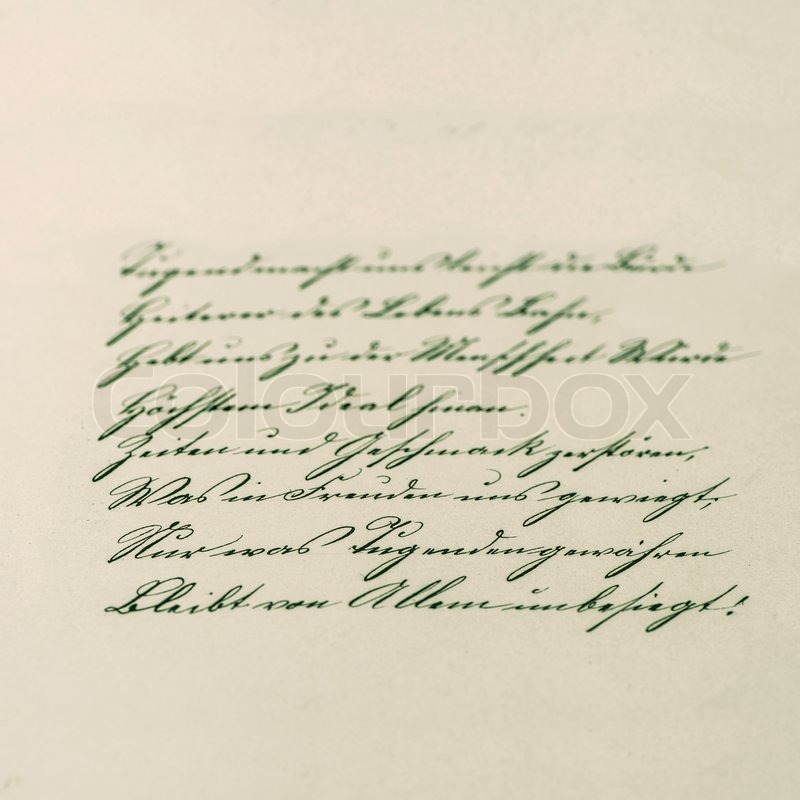 Tugend macht uns leicht die Bürde
Heiterer des Lebens Bahn,
Hebt uns zu der Menschheit Würde
Höchstem Ideal hinan.
colourbox
Zeiten und Geschmack zerstören,
Was in Freuden uns gewiegt,
Nur was Tugenden gewähren
Bleibt von Allem unbesiegt!